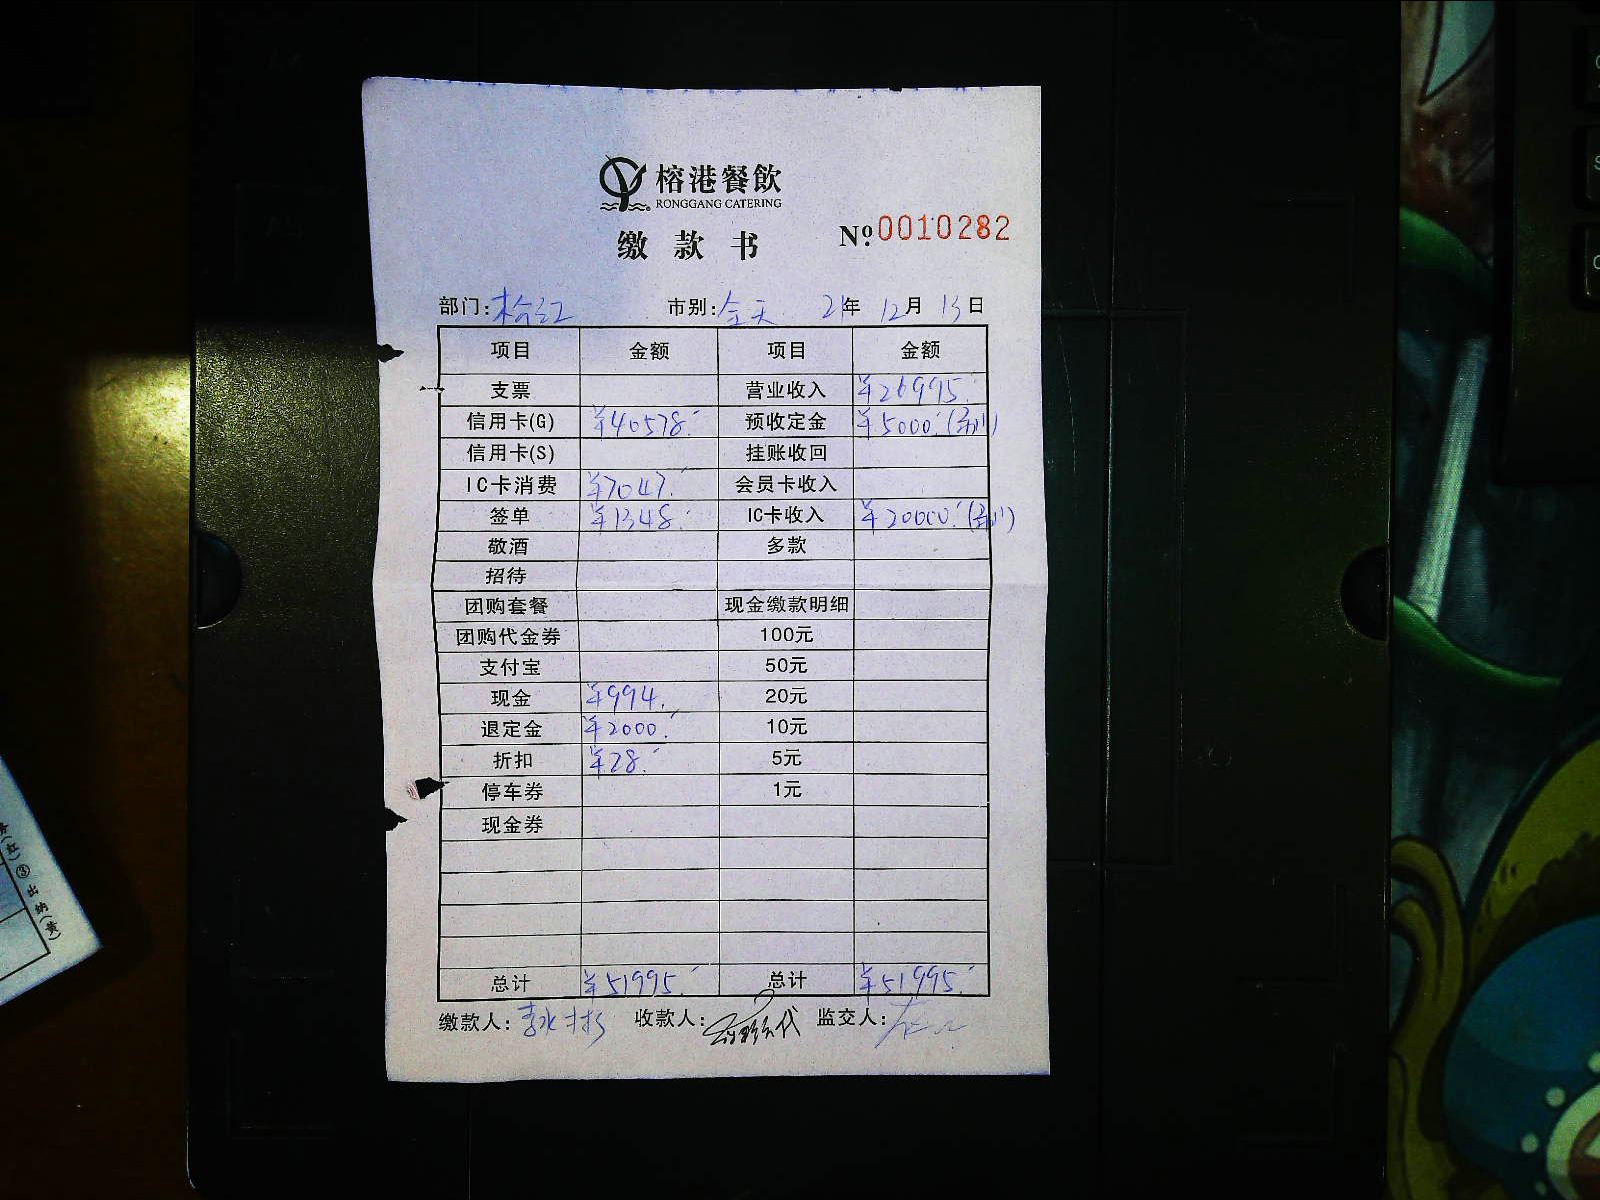 榕港餐飲
RONGGANG CATERING
缴款书 №0010282
部门: 市别:全天 21年 12月 13日
项目 金额 项目 金额
支票 营业收入 ¥26995.-
信用卡(G) ¥40578.- 预收定金 ¥5000.-
信用卡(S) 挂账收回
IC卡消费 ¥7047.- 会员卡收入
签单 ¥1348.- IC卡收入 ¥20000.-
敬酒 多款
招待
团购套餐 现金缴款明细
团购代金券 100元
支付宝 50元
现金 ¥994.- 20元
退定金 ¥2000.- 10元
折扣 ¥28.- 5元
停车券 1元
现金券
总计 ¥51995.- 总计 ¥51995.-
缴款人: 收款人: 监交人:
(红)③出纳(黄)